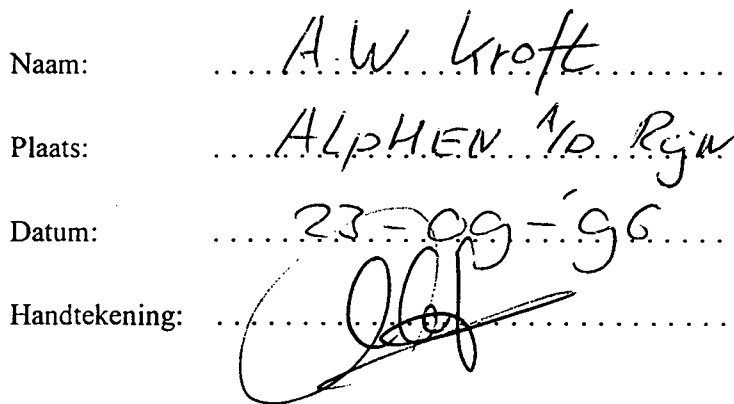 Naam: A.W Kroft
Plaats: ALpHEN A/D Rijn
Datum: 23-09-'96
Handtekening: